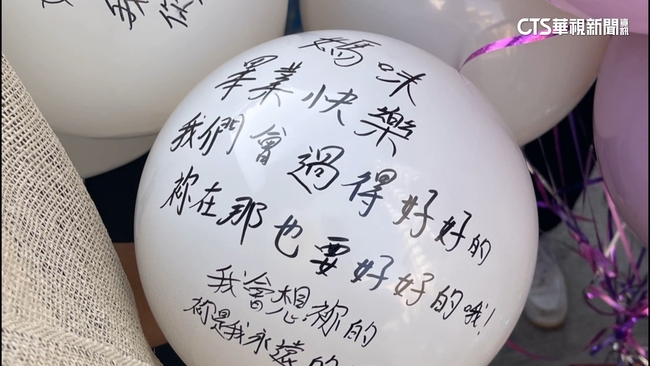 CTS華視新聞資訊
媽咪
畢業快樂
我們會過得好好的
祢在那也要好好的哦!
我會想祢的
祢是我永遠的